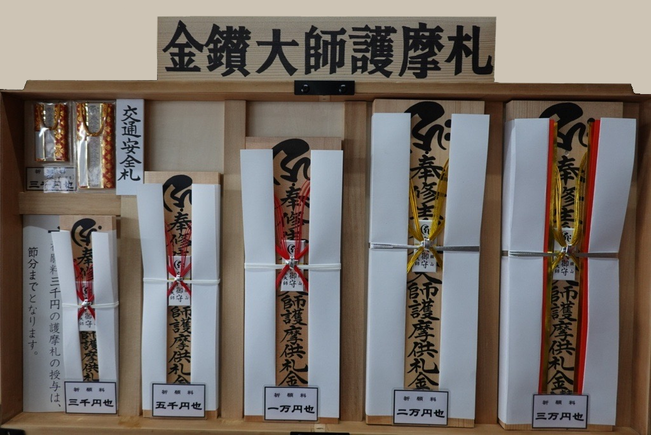 金鑚大師護摩札
交通安全札
三千円也
祈願料三千円の護摩札の授与は、
節分までとなります。
奉修
師護摩供札
祈願料
三千円也
奉修
御守
師護摩供札
祈願料
五千円也
奉修
御守
師護摩供札金
祈願料
一万円也
奉修
御守
大師護摩供札金
祈願料
二万円也
奉修
御守
師護摩供札金
祈願料
三万円也